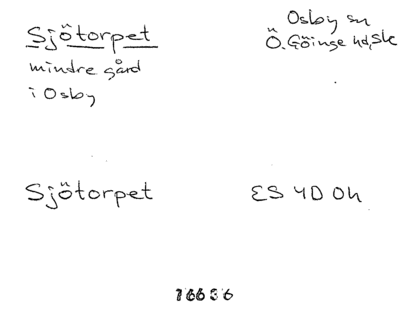 Sjötorpet
mindre gård
i Osby
Osby sn
Ö. Göinge hd, Sk
Sjötorpet
ES 4D 0h
16636